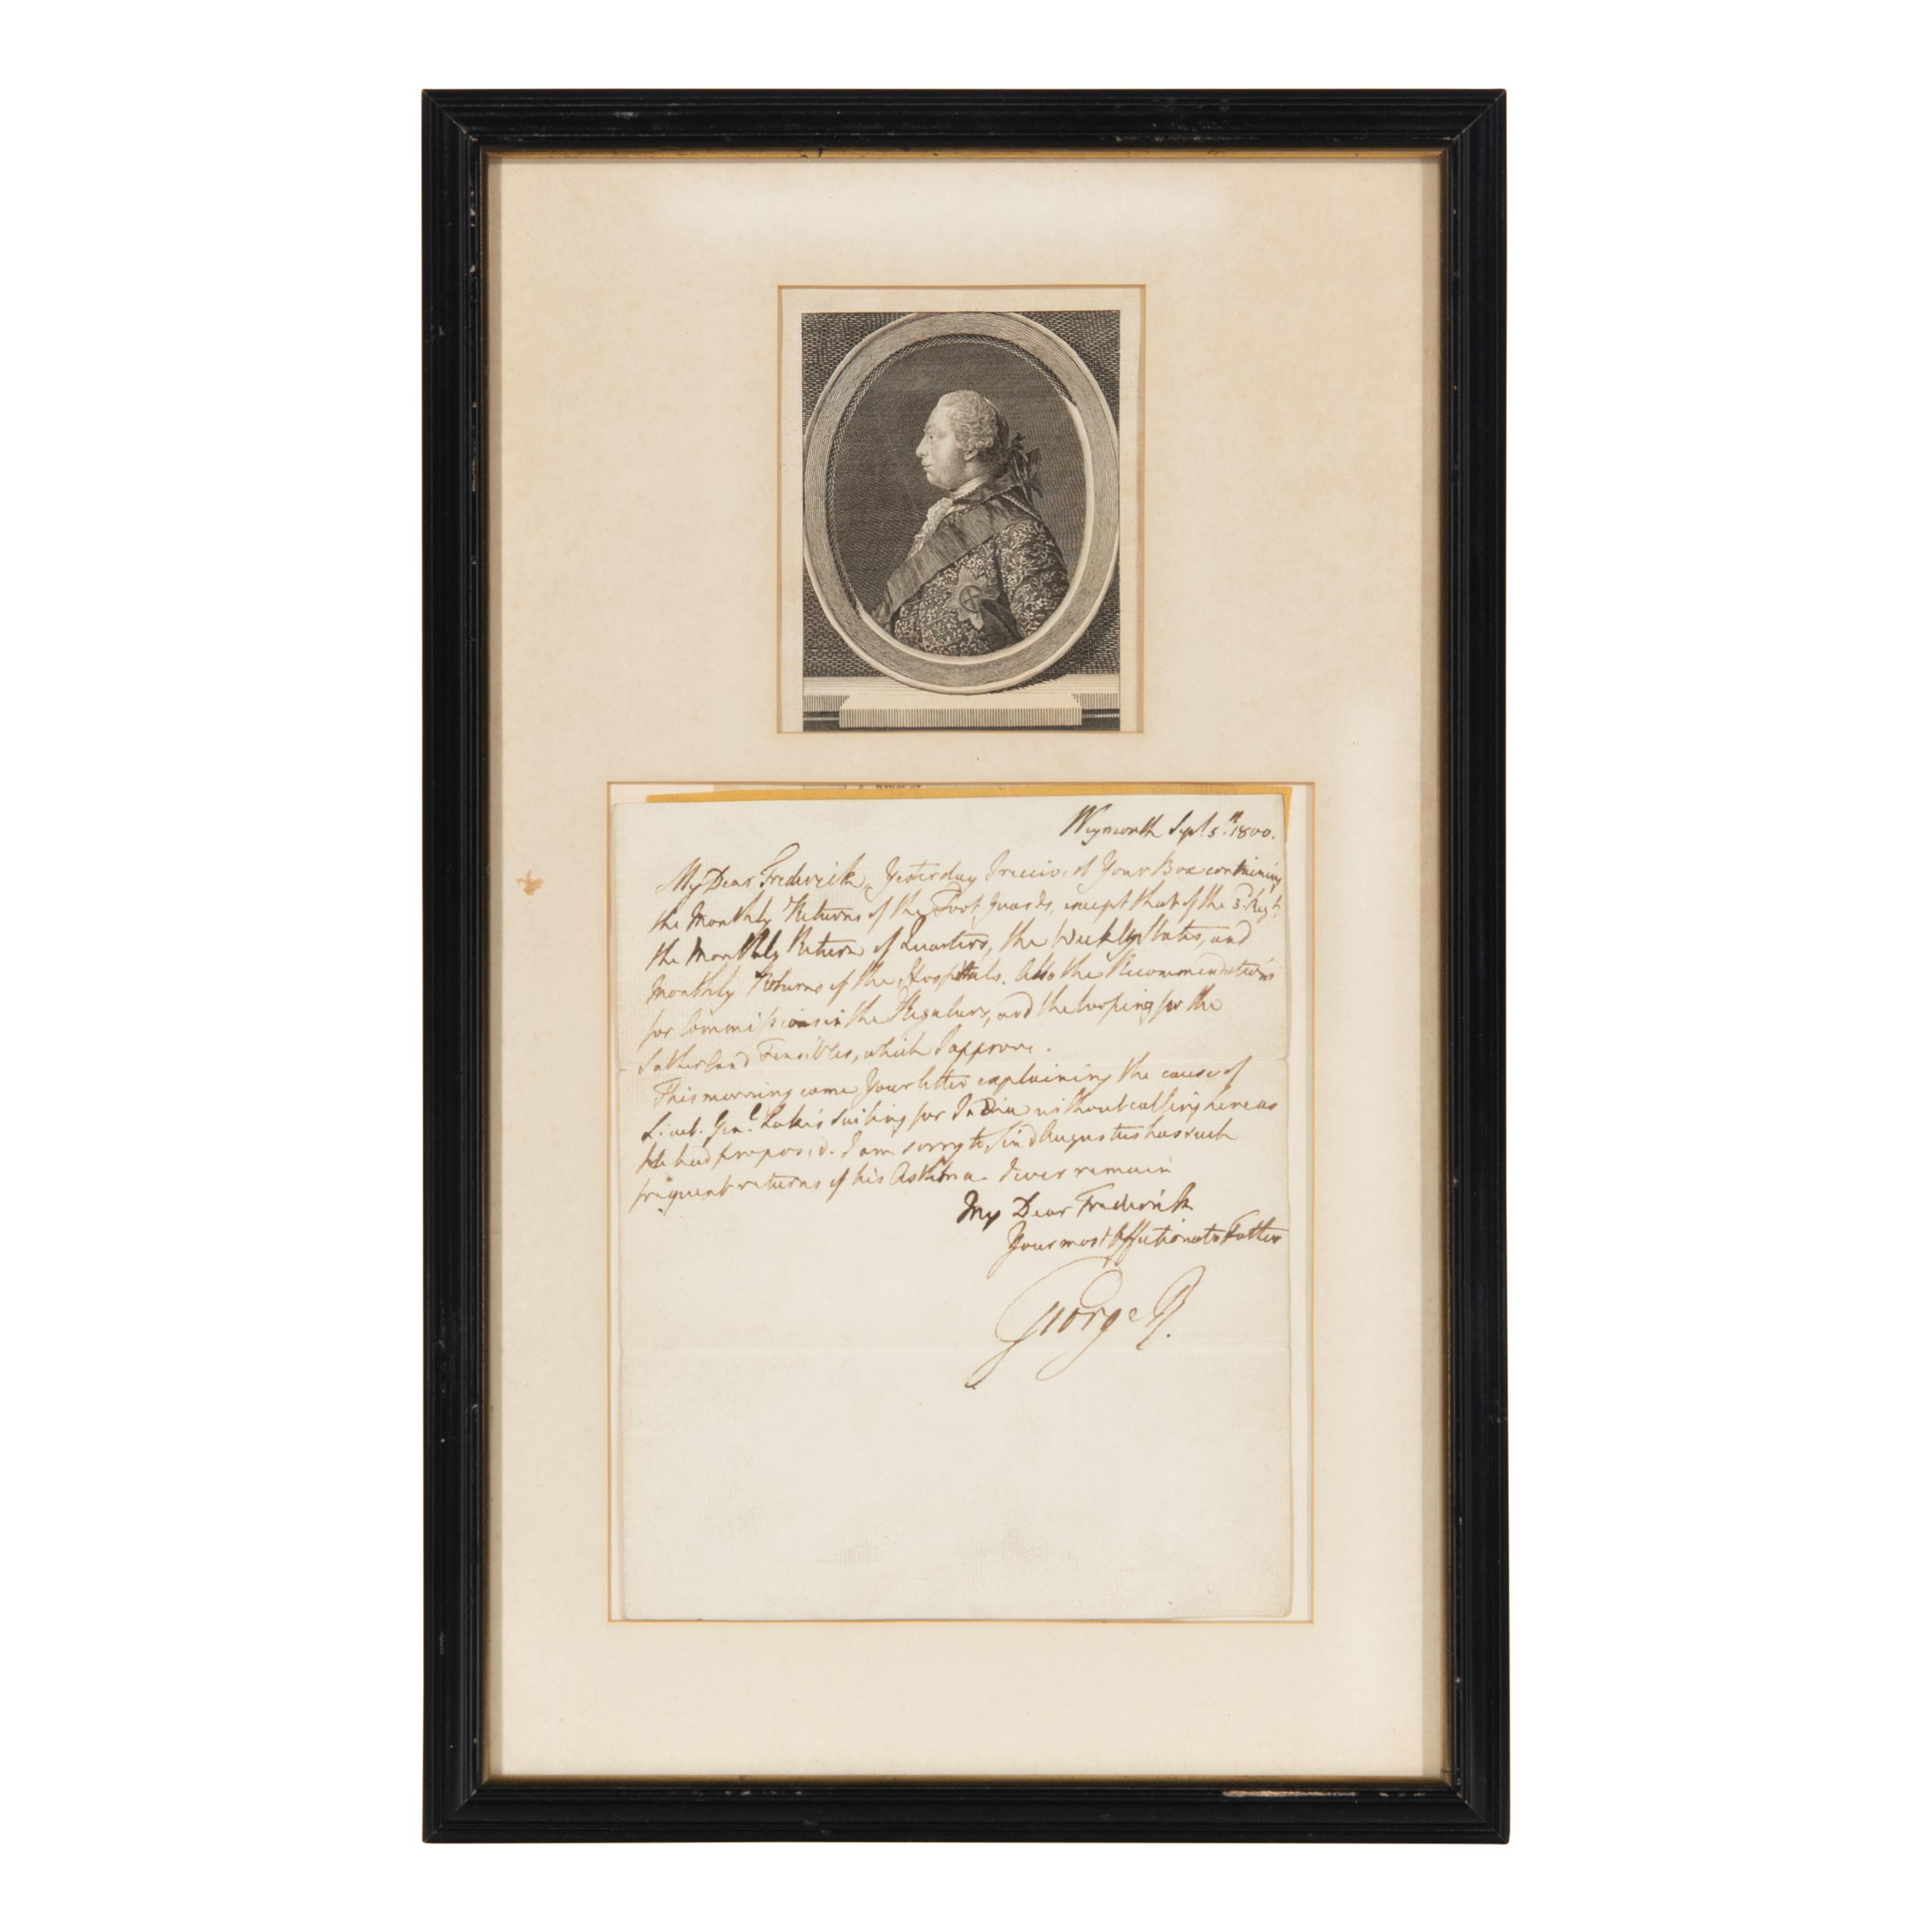 Weymouth Sept. 5th. 1800.
My Dear Frederick, Yesterday I received Your Box containing
the Monthly Returns of the Foot Guards, except that of the 3d. Regt.
the Monthly Return of Quarters, the Weekly States, and
Monthly Returns of the Hospitals. Also the Recommendations
for Commissions in the Regulars, and the for the
Sutherland Fencibles, which I approve.
This morning came Your letter explaining the cause of
Lieut. Genl. Lake's sailing for India without calling here as
He had proposed. I am sorry to find Augustus has such
frequent returns of his Asthma. I ever remain
My Dear Frederick
Your most Affectionate Father
George R.